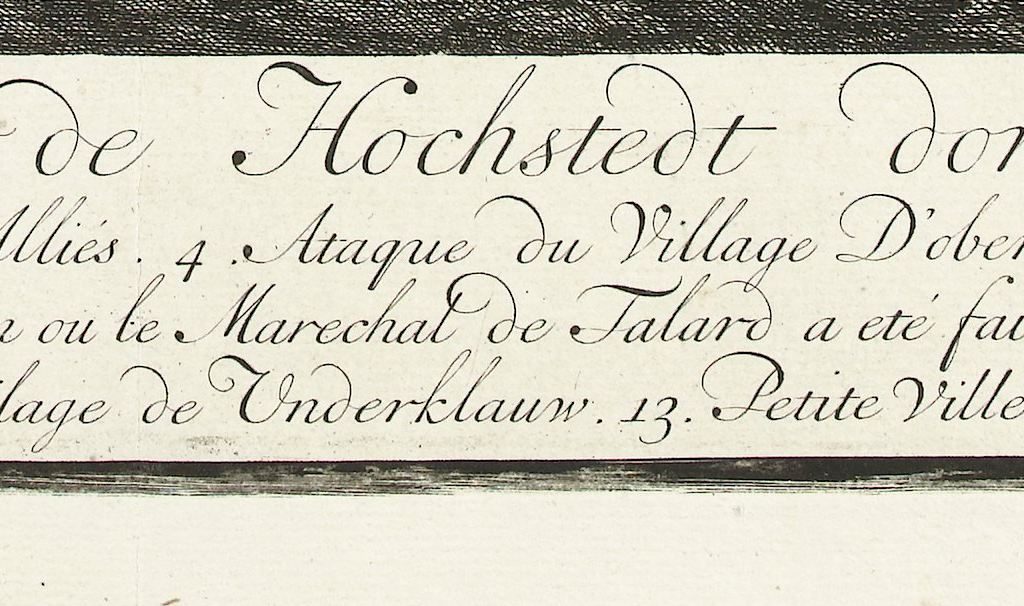 de Hochstedt don
Alliés. 4. Ataque du Village D'ober
ou le Marechal de Talard a eté fai
lage de Vnderklauw. 13. Petite Ville